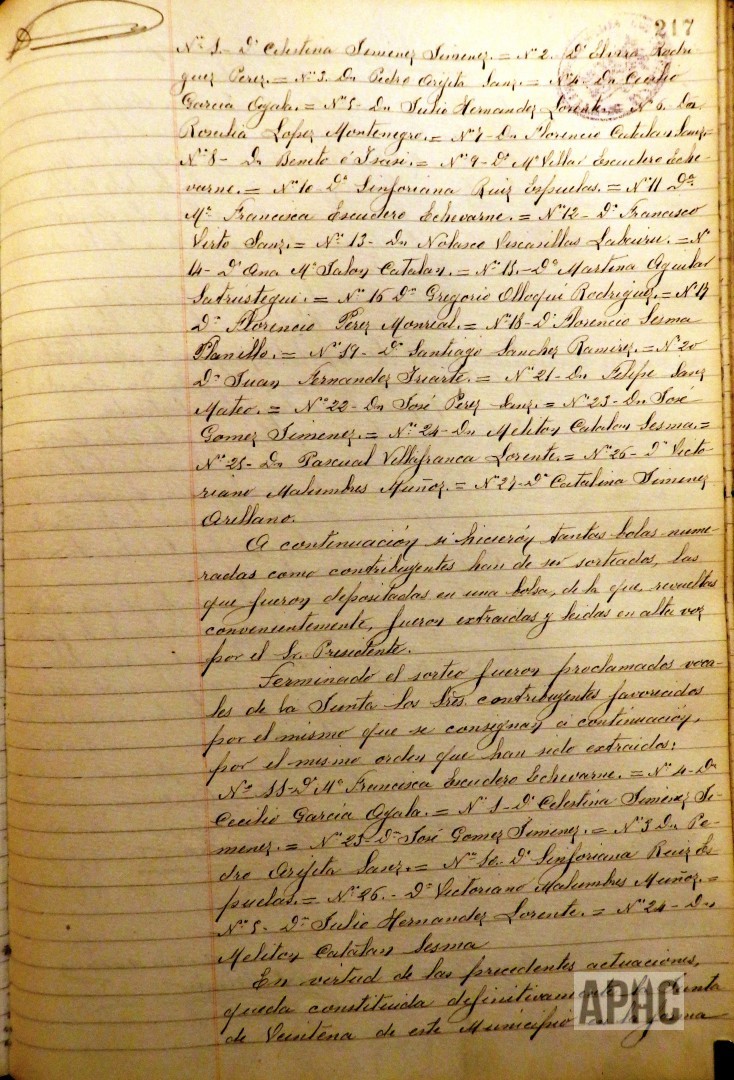 217
Nº 1- Dª Celestina Jimenez Jimenez. = Nº 2. Dª Elvira Rodri-
guez Perez. = Nº 3. Dn Pedro Orgeta Sanz. = Nº 4. Dn Cecilio
Garcia Ayala. = Nº 5- Dn Julio Hernandez Lorente. = Nº 6. Dn
Lopez Montenegro. = Nº 7- Dn Florencio Catalan Sanz. =
Nº 8- Dn Benito é Isasi. = Nº 9- Dª Mª Villar Escudero Eche-
varne. = Nº 10 Dª Sinforiana Ruiz Espuelas. = Nº 11 Dª
Mª Francisca Escudero Echevarne. = Nº 12- Dn Francisco
Virto Sanz. = Nº 13- Dn Nolasco Viscasillas Labairu. = Nº
14- Dª Ana Mª Jalon Catalan. = Nº 15.- Dª Martina Aguilar
Satrustegui. = Nº 16 Dn Gregorio Olloqui Rodriguez. = Nº 17
Dn Florencio Perez Monreal. = Nº 18- Dn Florencio Sesma
Planillo. = Nº 19- Dn Santiago Sanchez Ramirez. = Nº 20
Dn Juan Fernandez Iriarte. = Nº 21- Dn Felipe Sanz
Mateo. = Nº 22- Dn José Perez Sanz. = Nº 23- Dn José
Gomez Jimenez. = Nº 24- Dn Meliton Catalan Sesma. =
Nº 25- Dn Pascual Villafranca Lorente. = Nº 26- Dn Victo
riano Malumbres Muñoz. = Nº 27- Dª Catalina Jimenez
Arellano.
A continuación se hicierón tantas bolas nume-
radas como contribuyentes han de ser sorteados, las
que fueron depositadas en una bolsa, de la que, revueltas
convenientemente, fueron extraidas y leidas en alta voz
por el Sr. Presidente.
Terminado el sorteo fueron proclamados voca-
les de la Junta los Sres. contribuyentes favorecidos
por el mismo que se consignan a continuación,
por el mismo orden que han sido extraidos:
Nº 11- Dª Mª Francisca Escudero Echevarne. = Nº 4- Dn
Cecilio Garcia Ayala. = Nº 1- Dª Celestina Jiménez Ji-
menez. = Nº 23- Dn José Gomez Jimenez. = Nº 3 Dn Pe-
dro Orgeta Sanz. = Nº 10- Dª Sinforiana Ruiz Es-
puelas. = Nº 26.- Dn Victoriano Malumbres Muñoz. =
Nº 5- Dn Julio Hernandez Lorente. = Nº 24- Dn
Meliton Catalan Sesma
En virtud de las precedentes actuaciones,
queda constituida definitivamente la Junta
de Veintena de este Municipio
APHC